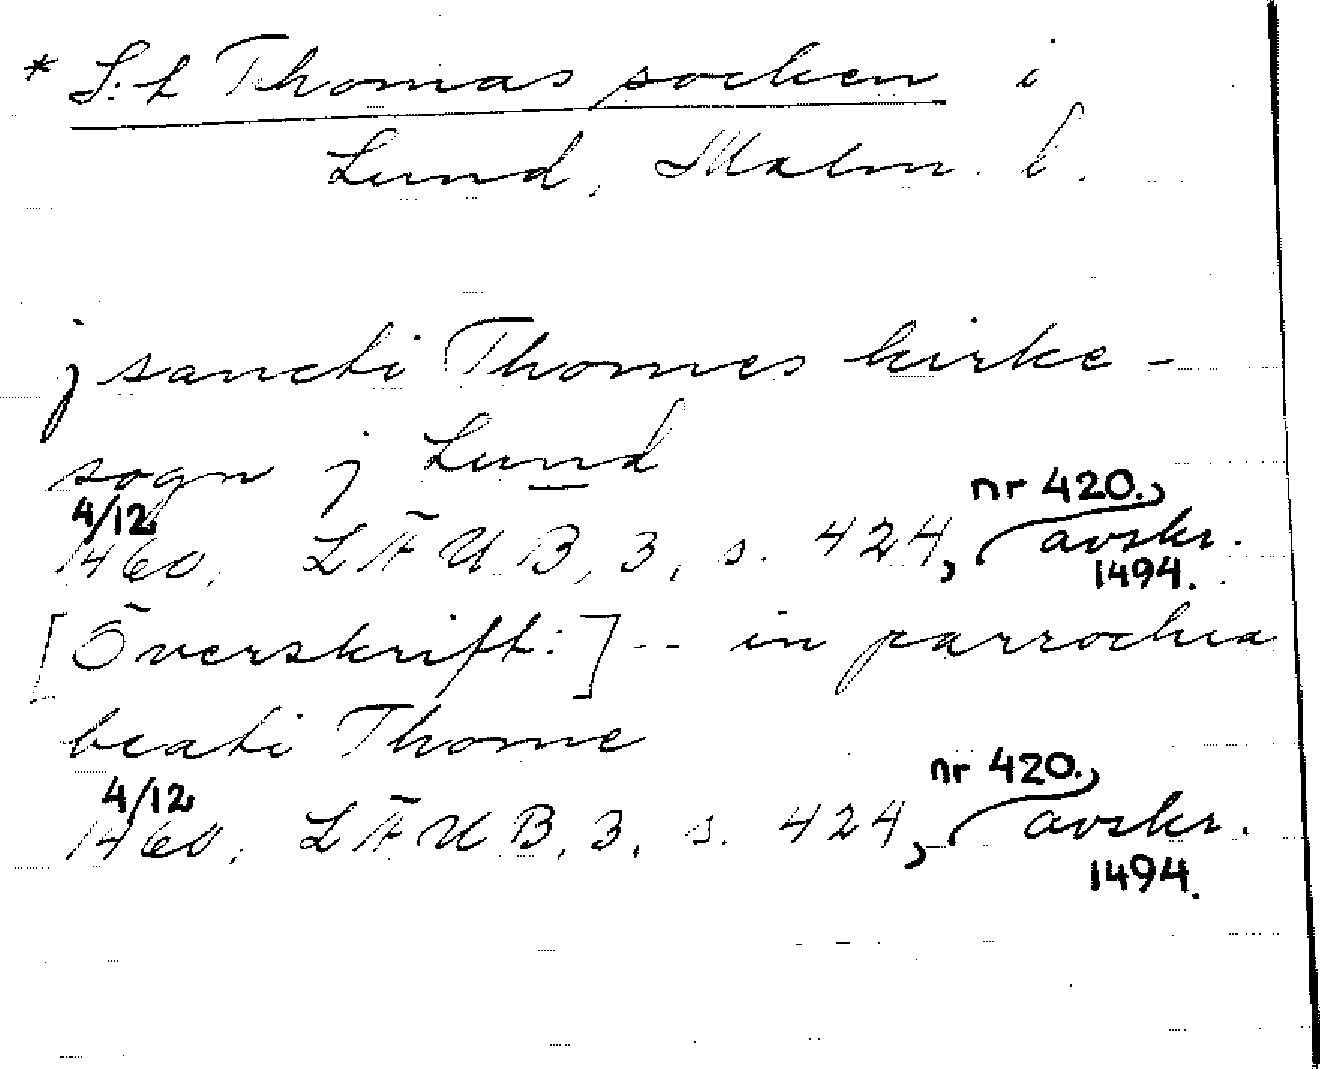 * S:t Thomas socken i
Lund, Malm. l.
j sancti Thomes kirke-
sogn j Lund
4/12 1460, LÄUB, 3, s. 424, nr 420., avskr. 1494.
[Överskrift:] -- in parrochia
beati Thome
4/12 1460, LÄUB, 3, s. 424, nr 420., avskr. 1494.